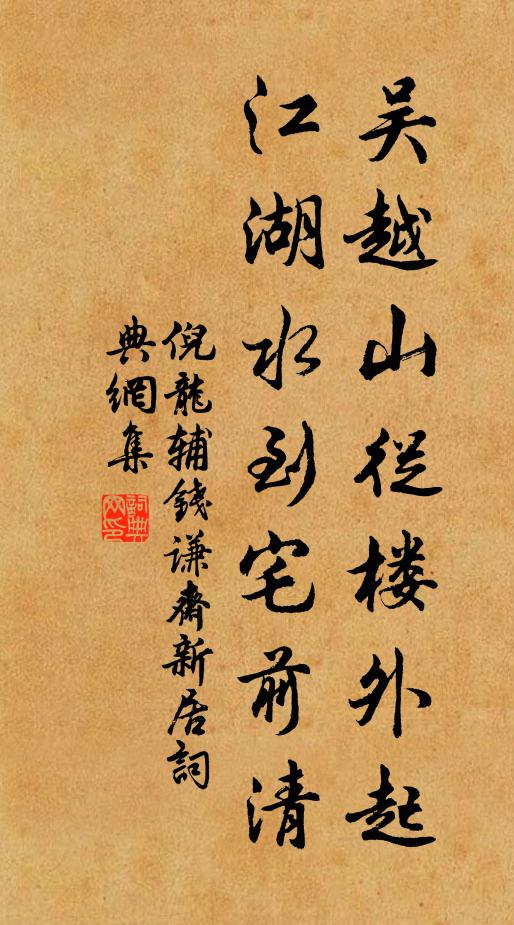 吴越山從楼外起
江湖水到宅前清
倪龍辅錢谦齋新居詞
典網集
詞典网印